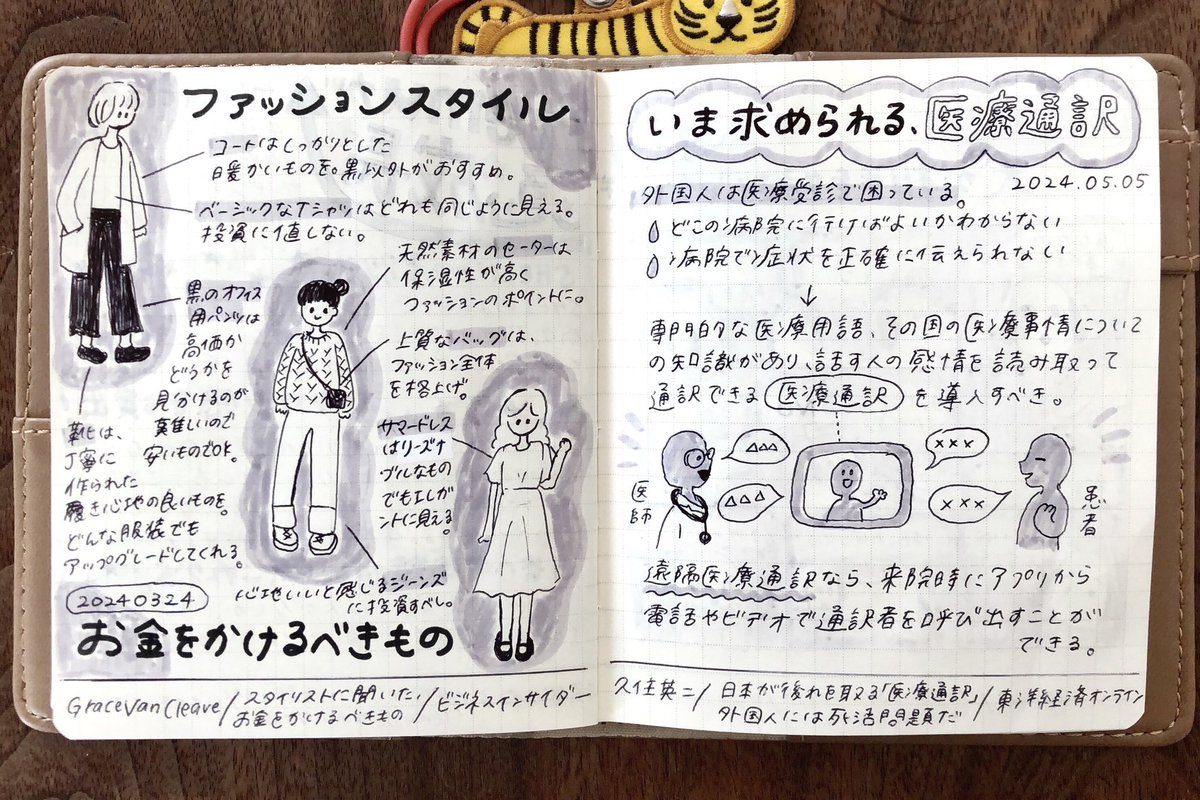 ファッションスタイル
コートはしっかりとした
暖かいものを。黒以外がおすすめ。
ベーシックなTシャツはどれも同じように見える。
投資に値しない。
天然素材のセーターは
保湿性が高く
ファッションのポイントに。
黒のオフィス
用パンツは
高価か
どうかを
見分けるのが
難しいので
安いものでOK。
上質なバッグは、
ファッション全体
を格上げ。
サマードレス
はリーズナ
ブルなもの
でもエレガ
ントに見える。
靴は、
丁寧に
作られた
履き心地の良いものを。
どんな服装でも
アップグレードしてくれる。
心地いいと感じるジーンズ
に投資すべし。
20240324
お金をかけるべきもの
GraceVanCleave/スタイリストに聞いた、
お金をかけるべきもの/ビジネスインサイダー
いま求められる、医療通訳
2024.05.05
外国人は医療受診で困っている。
どこの病院に行けばよいかわからない
病院で症状を正確に伝えられない
↓
専門的な医療用語、その国の医療事情について
の知識があり、話す人の感情を読み取って
通訳できる 医療通訳 を導入すべき。
医師
△△△
△△△
×××
×××
患者
遠隔医療通訳なら、来院時にアプリから
電話やビデオで通訳者を呼び出すことが
できる。
久住英二/日本が後れを取る「医療通訳」
外国人には死活問題だ/東洋経済オンライン